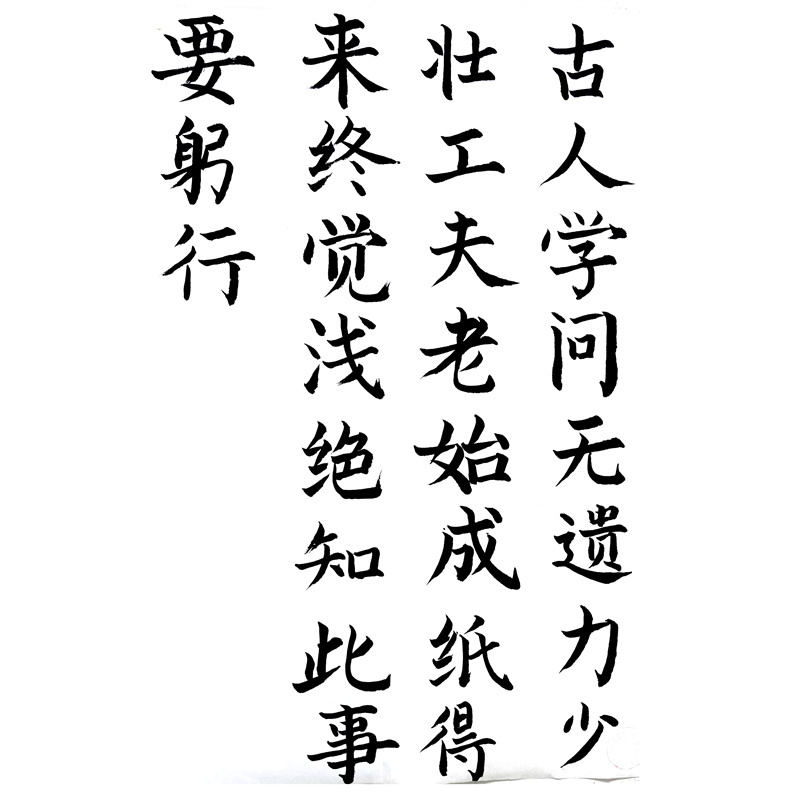 古人学问无遗力少
壮工夫老始成纸得
来终觉浅绝知此事
要躬行